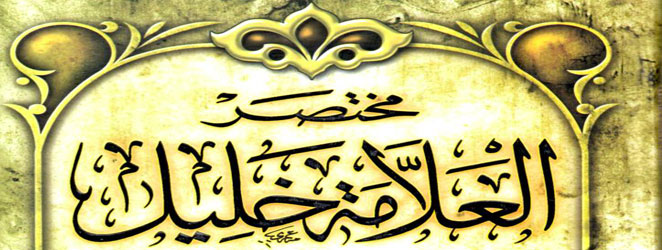 مختصر
العلامة خليل